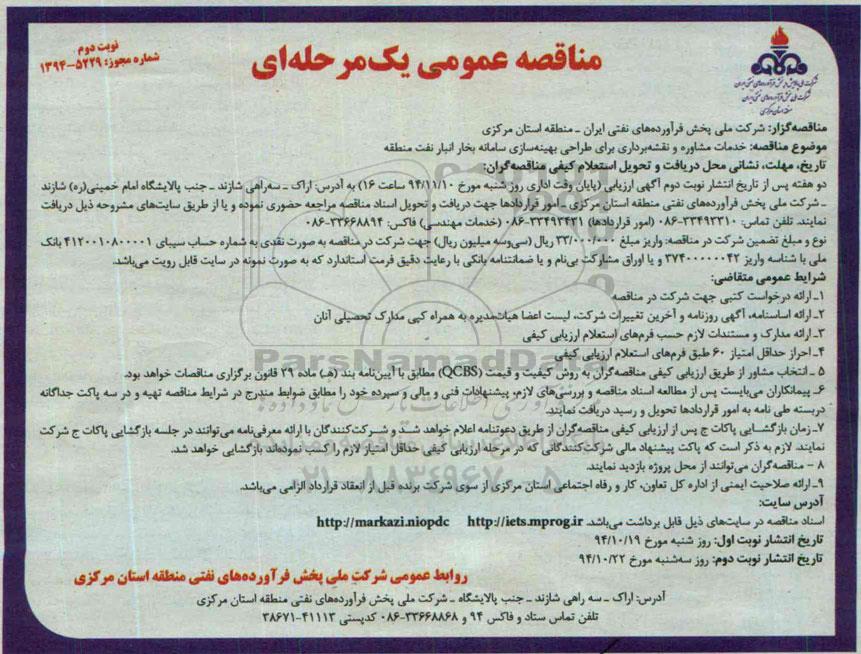 نوبت دوم
شماره مجوز: ۵۲۲۹-۱۳۹۴
مناقصه عمومی یک‌مرحله‌ای
شرکت ملی پالایش و پخش فرآورده‌های نفتی ایران
شرکت ملی پخش فرآورده‌های نفتی ایران
منطقه استان مرکزی
مناقصه‌گزار: شرکت ملی پخش فرآورده‌های نفتی ایران ـ منطقه استان مرکزی
موضوع مناقصه: خدمات مشاوره و نقشه‌برداری برای طراحی بهینه‌سازی سامانه بخار انبار نفت منطقه
تاریخ، مهلت، نشانی محل دریافت و تحویل استعلام کیفی مناقصه‌گران:
دو هفته پس از تاریخ انتشار نوبت دوم آگهی ارزیابی (پایان وقت اداری روز شنبه مورخ ۹۴/۱۱/۱۰ ساعت ۱۶) به آدرس: اراک ـ سه‌راهی شازند ـ جنب پالایشگاه امام خمینی(ره) شازند
ـ شرکت ملی پخش فرآورده‌های نفتی منطقه استان مرکزی ـ امور قراردادها جهت دریافت و تحویل اسناد مناقصه مراجعه حضوری نموده و یا از طریق سایت‌های مشروحه ذیل دریافت
نمایند. تلفن تماس: ۳۳۴۹۲۳۱۰-۰۸۶ (امور قراردادها) ۳۳۴۹۳۴۲۱-۰۸۶ (خدمات مهندسی) فاکس: ۳۳۶۶۸۸۹۴-۰۸۶
نوع و مبلغ تضمین شرکت در مناقصه: واریز مبلغ ۳۳/۰۰۰/۰۰۰ ریال (سی‌وسه میلیون ریال) جهت شرکت در مناقصه به صورت نقدی به شماره حساب سیبای ۴۱۲۰۰۱۰۸۰۰۰۰۱ بانک
ملی با شناسه واریز ۳۷۴۰۰۰۰۰۰۴۲ و یا اوراق مشارکت بی‌نام و یا ضمانتنامه بانکی با رعایت دقیق فرمت استاندارد که به صورت نمونه در سایت قابل رویت می‌باشد.
شرایط عمومی متقاضی:
۱ـ ارائه درخواست کتبی جهت شرکت در مناقصه
۲ـ ارائه اساسنامه، آگهی روزنامه و آخرین تغییرات شرکت، لیست اعضا هیات‌مدیره به همراه کپی مدارک تحصیلی آنان
۳ـ ارائه مدارک و مستندات لازم حسب فرم‌های استعلام ارزیابی کیفی
۴ـ احراز حداقل امتیاز ۶۰ طبق فرم‌های استعلام ارزیابی کیفی
۵ ـ انتخاب مشاور از طریق ارزیابی کیفی مناقصه‌گران به روش کیفیت و قیمت (QCBS) مطابق با آیین‌نامه بند (هـ) ماده ۲۹ قانون برگزاری مناقصات خواهد بود.
۶ـ پیمانکاران می‌بایست پس از مطالعه اسناد مناقصه و بررسی‌های لازم، پیشنهادات فنی و مالی و سپرده خود را مطابق ضوابط مندرج در شرایط مناقصه تهیه و در سه پاکت جداگانه
دربسته طی نامه به امور قراردادها تحویل و رسید دریافت نمایند.
۷ـ زمان بازگشـایی پاکات ج پس از ارزیابی کیفی مناقصه‌گران از طریق دعوتنامه اعلام خواهد شـد و شـرکت‌کنندگان با ارائه معرفی‌نامه می‌توانند در جلسه بازگشایی پاکات ج شرکت
نمایند. لازم به ذکر است که پاکت پیشنهاد مالی شرکت‌کنندگانی که در مرحله ارزیابی کیفی حداقل امتیاز لازم را کسب نموده‌اند بازگشایی خواهد شد.
۸ - مناقصه‌گران می‌توانند از محل پروژه بازدید نمایند.
۹ـ ارائه صلاحیت ایمنی از اداره کل تعاون، کار و رفاه اجتماعی استان مرکزی از سوی شرکت برنده قبل از انعقاد قرارداد الزامی می‌باشد.
آدرس سایت:
اسناد مناقصه در سایت‌های ذیل قابل برداشت می‌باشد. http://iets.mprog.ir http://markazi.niopdc
تاریخ انتشار نوبت اول: روز شنبه مورخ ۹۴/۱۰/۱۹
تاریخ انتشار نوبت دوم: روز سه‌شنبه مورخ ۹۴/۱۰/۲۲
روابط عمومی شرکت ملی پخش فرآورده‌های نفتی منطقه استان مرکزی
آدرس: اراک ـ سه راهی شازند ـ جنب پالایشگاه ـ شرکت ملی پخش فرآورده‌های نفتی منطقه استان مرکزی
تلفن تماس ستاد و فاکس ۹۴ و ۳۳۶۶۸۸۶۸-۰۸۶ کدپستی ۴۱۱۱۳-۳۸۶۷۱
ParsNamadData
۰۲۱-۸۸۳۴۹۶۷۰-۵